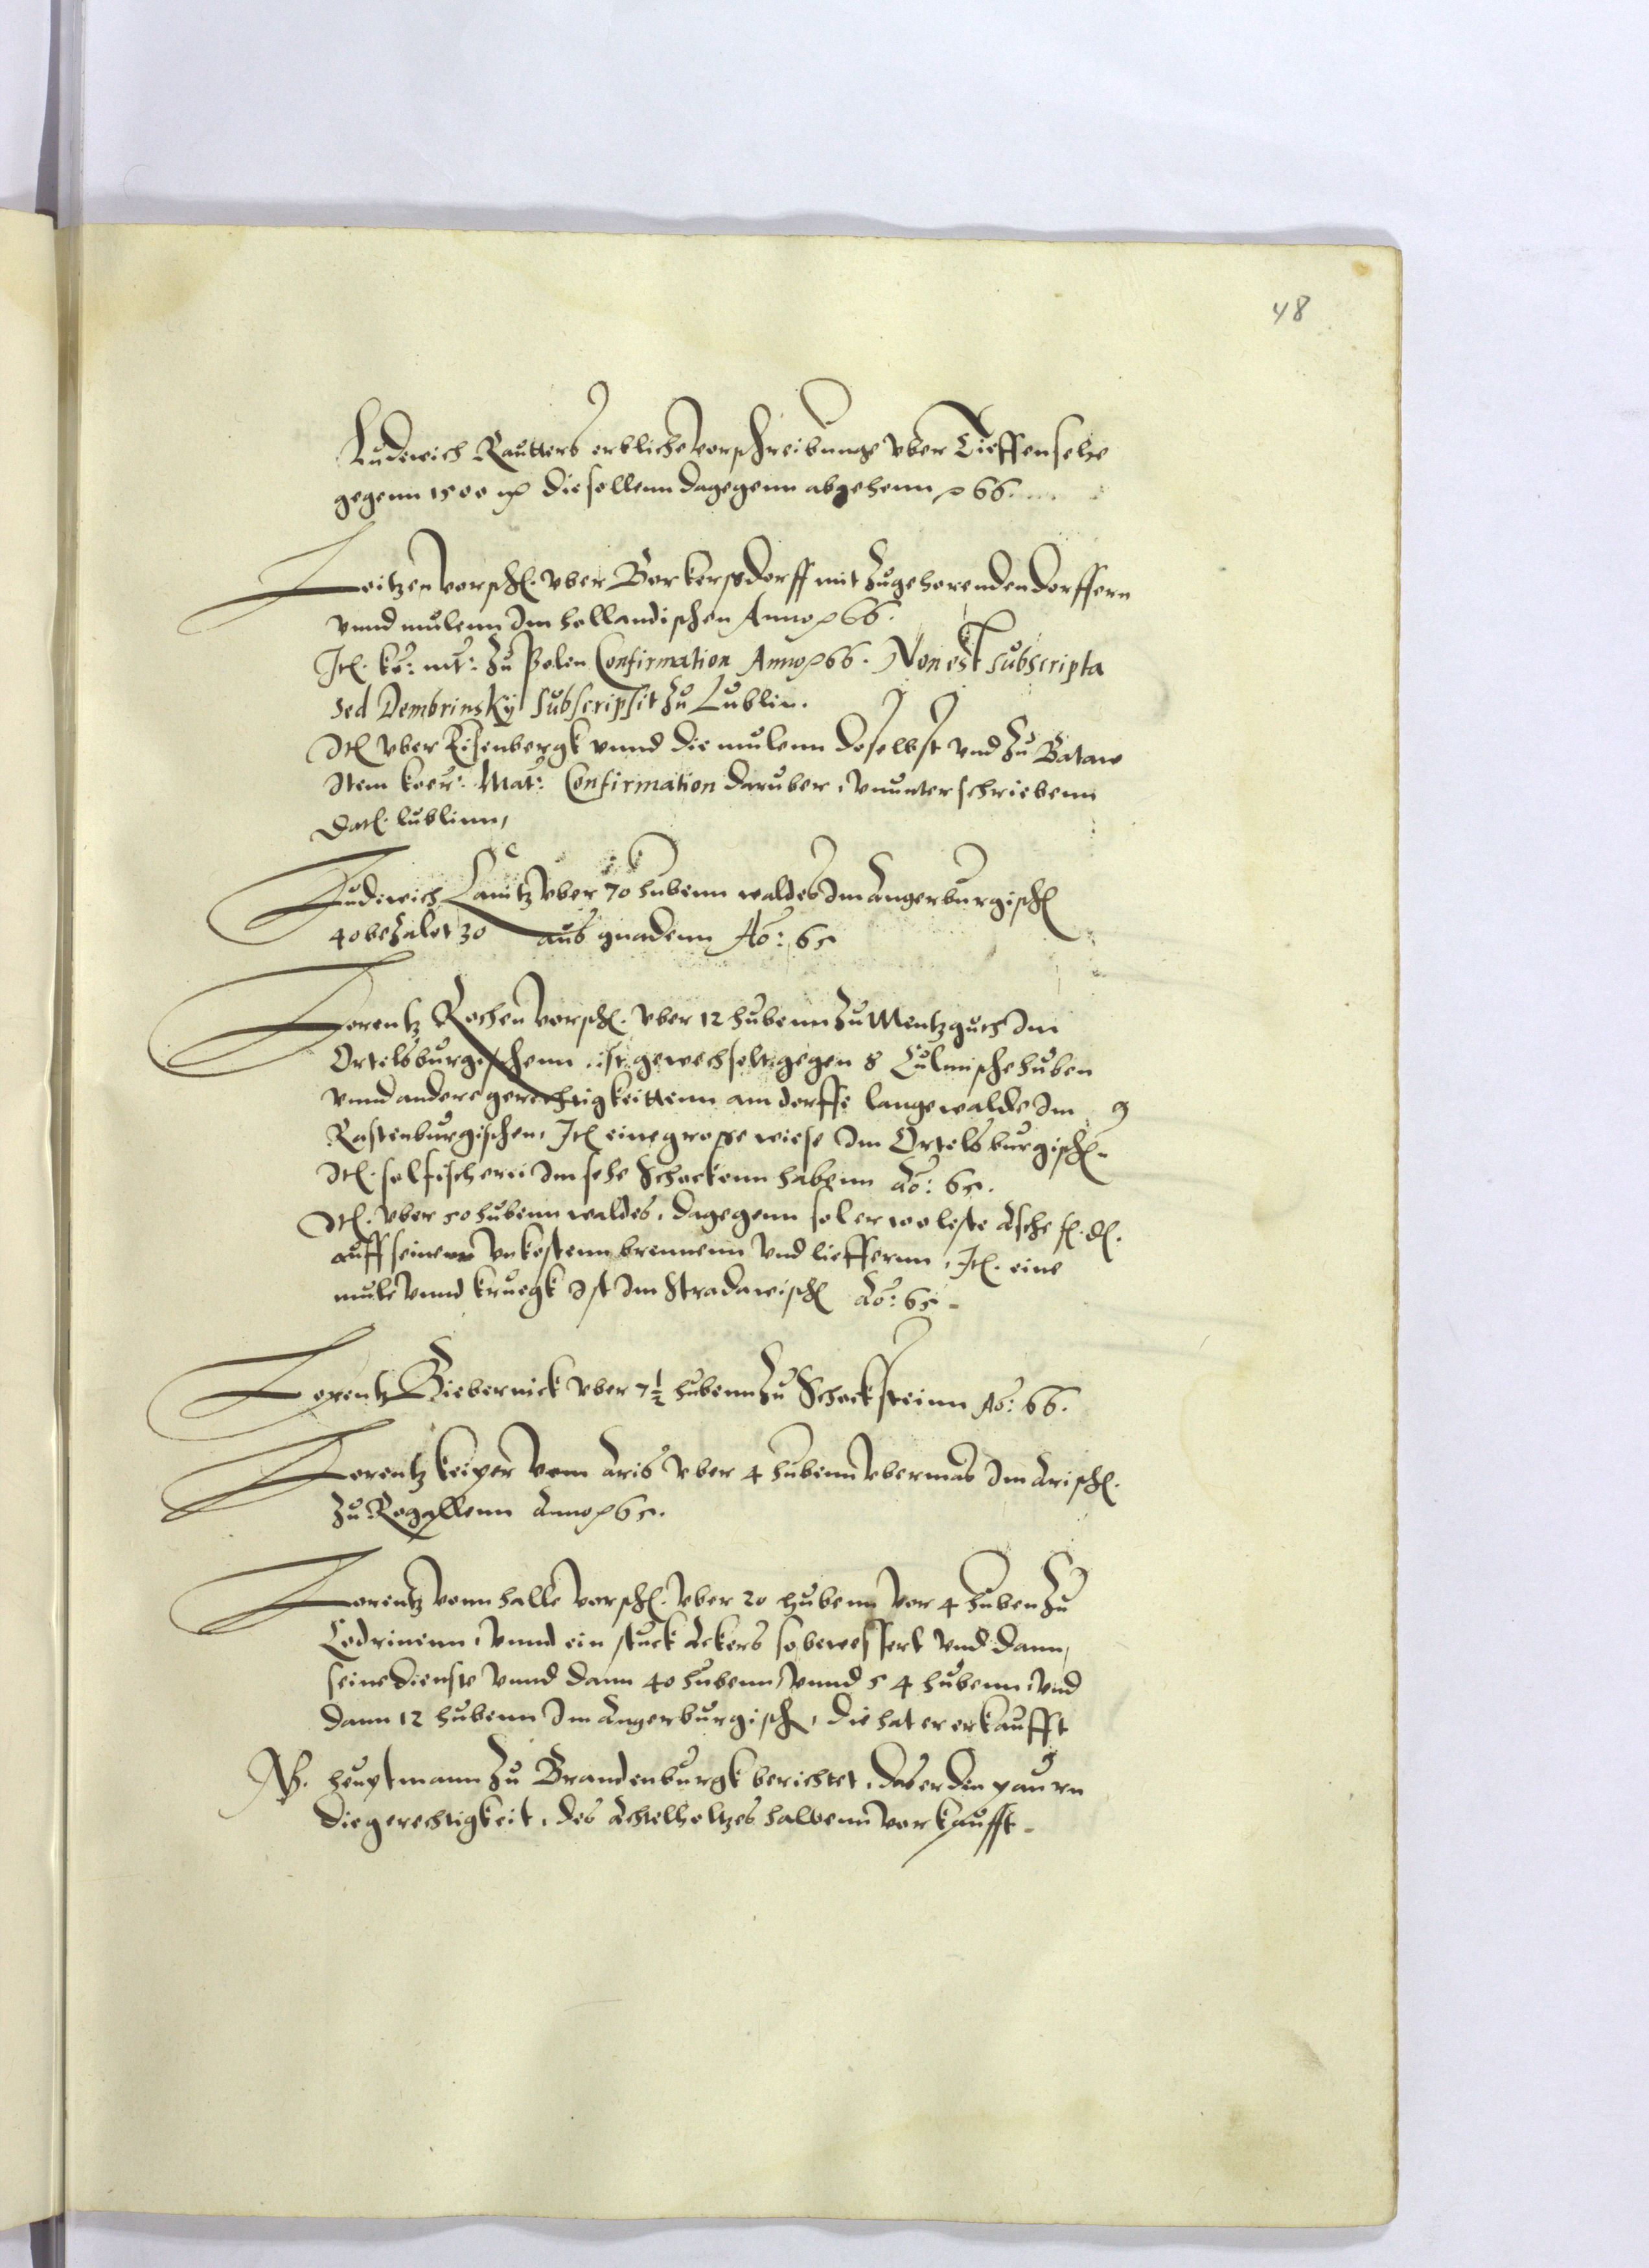 48
Ludewich Rautters erbliche vorschreibunge vber Tieffensehe
gegenn 1500 die sollenn dagegenn abgehenn 66.
Loitzen vorsch. vber Borkersdorff mit zugehorenden dorffern
vnnd mulenn Im hollandischen Anno 66.
It. ko: mt: zu Polen Confirmation Anno 66. Non est subscripta
sed Dembrinsky subscripsit zu Lublin.
It vber Eisenbergk vnnd die mulenn doselbst vnd zu Bataw
Item koer: Mat: Confirmation daruber, vnunterschriebenn
Dat. lublinn,
Ludewich Canitz vber 70 hubenn waldes Im Angerburgisch
40 bezalet 30 aus gnadenn Ao: 65
Lorentz Rochen vorsch. vber 12 hubenn zu Mentzguth Im
Ortelsburgischenn, ist gewechselt gegen 8 Culmische huben
vnnd andere gerechtigkeittenn am dorffe langewalde Im
Rastenburgischen, It eine grosse wiese Im Ortelsburgisch.
It. sol fischerei Im sehe Schockenn habenn Ao: 65.
It. vber 50 hubenn waldes, dagegenn sol er 100 leste Asche f. d.
auff seinenn vnkostenn brennenn vnd lieffernn, It. eine
mule vnnd kruegk Ist Im Stradawisch Ao: 65.
Lorentz Biebernick vber 7½ hubenn zu Schocksteinn Ao: 66.
Lorentz keiper vom Aris vber 4 hubenn vbermas Im Arisch.
zu Rogallenn Anno 65.
Lorentz vonn halle vorsch. vber 20 hubenn vor 4 huben zu
Codrinenn, vnnd ein stuck Ackers so bewessert vnd dann,
seine dienste vnnd dann 40 hubenn, vnnd 5 4 hubenn, vnd
dann 12 hubenn Im Angerburgisch, die hat er erkaufft
NB. heuptmann zu Brandenburgk berichtet, das er den paurn
die gerechtigkeit, des Achtelholtzes halbenn vorkaufft.